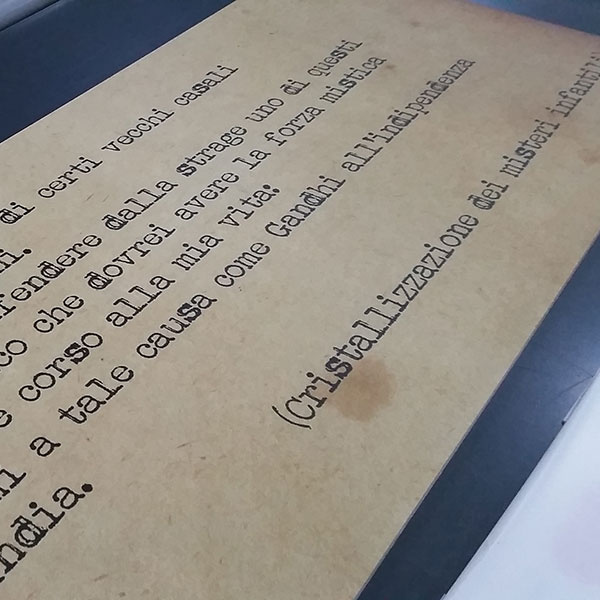 di certi vecchi casali
dalla strage uno di questi
che dovrei avere la forza mistica
corso alla mia vita:
a tale causa come Gandhi all'indipendenza
(Cristallizzazione dei misteri infantili